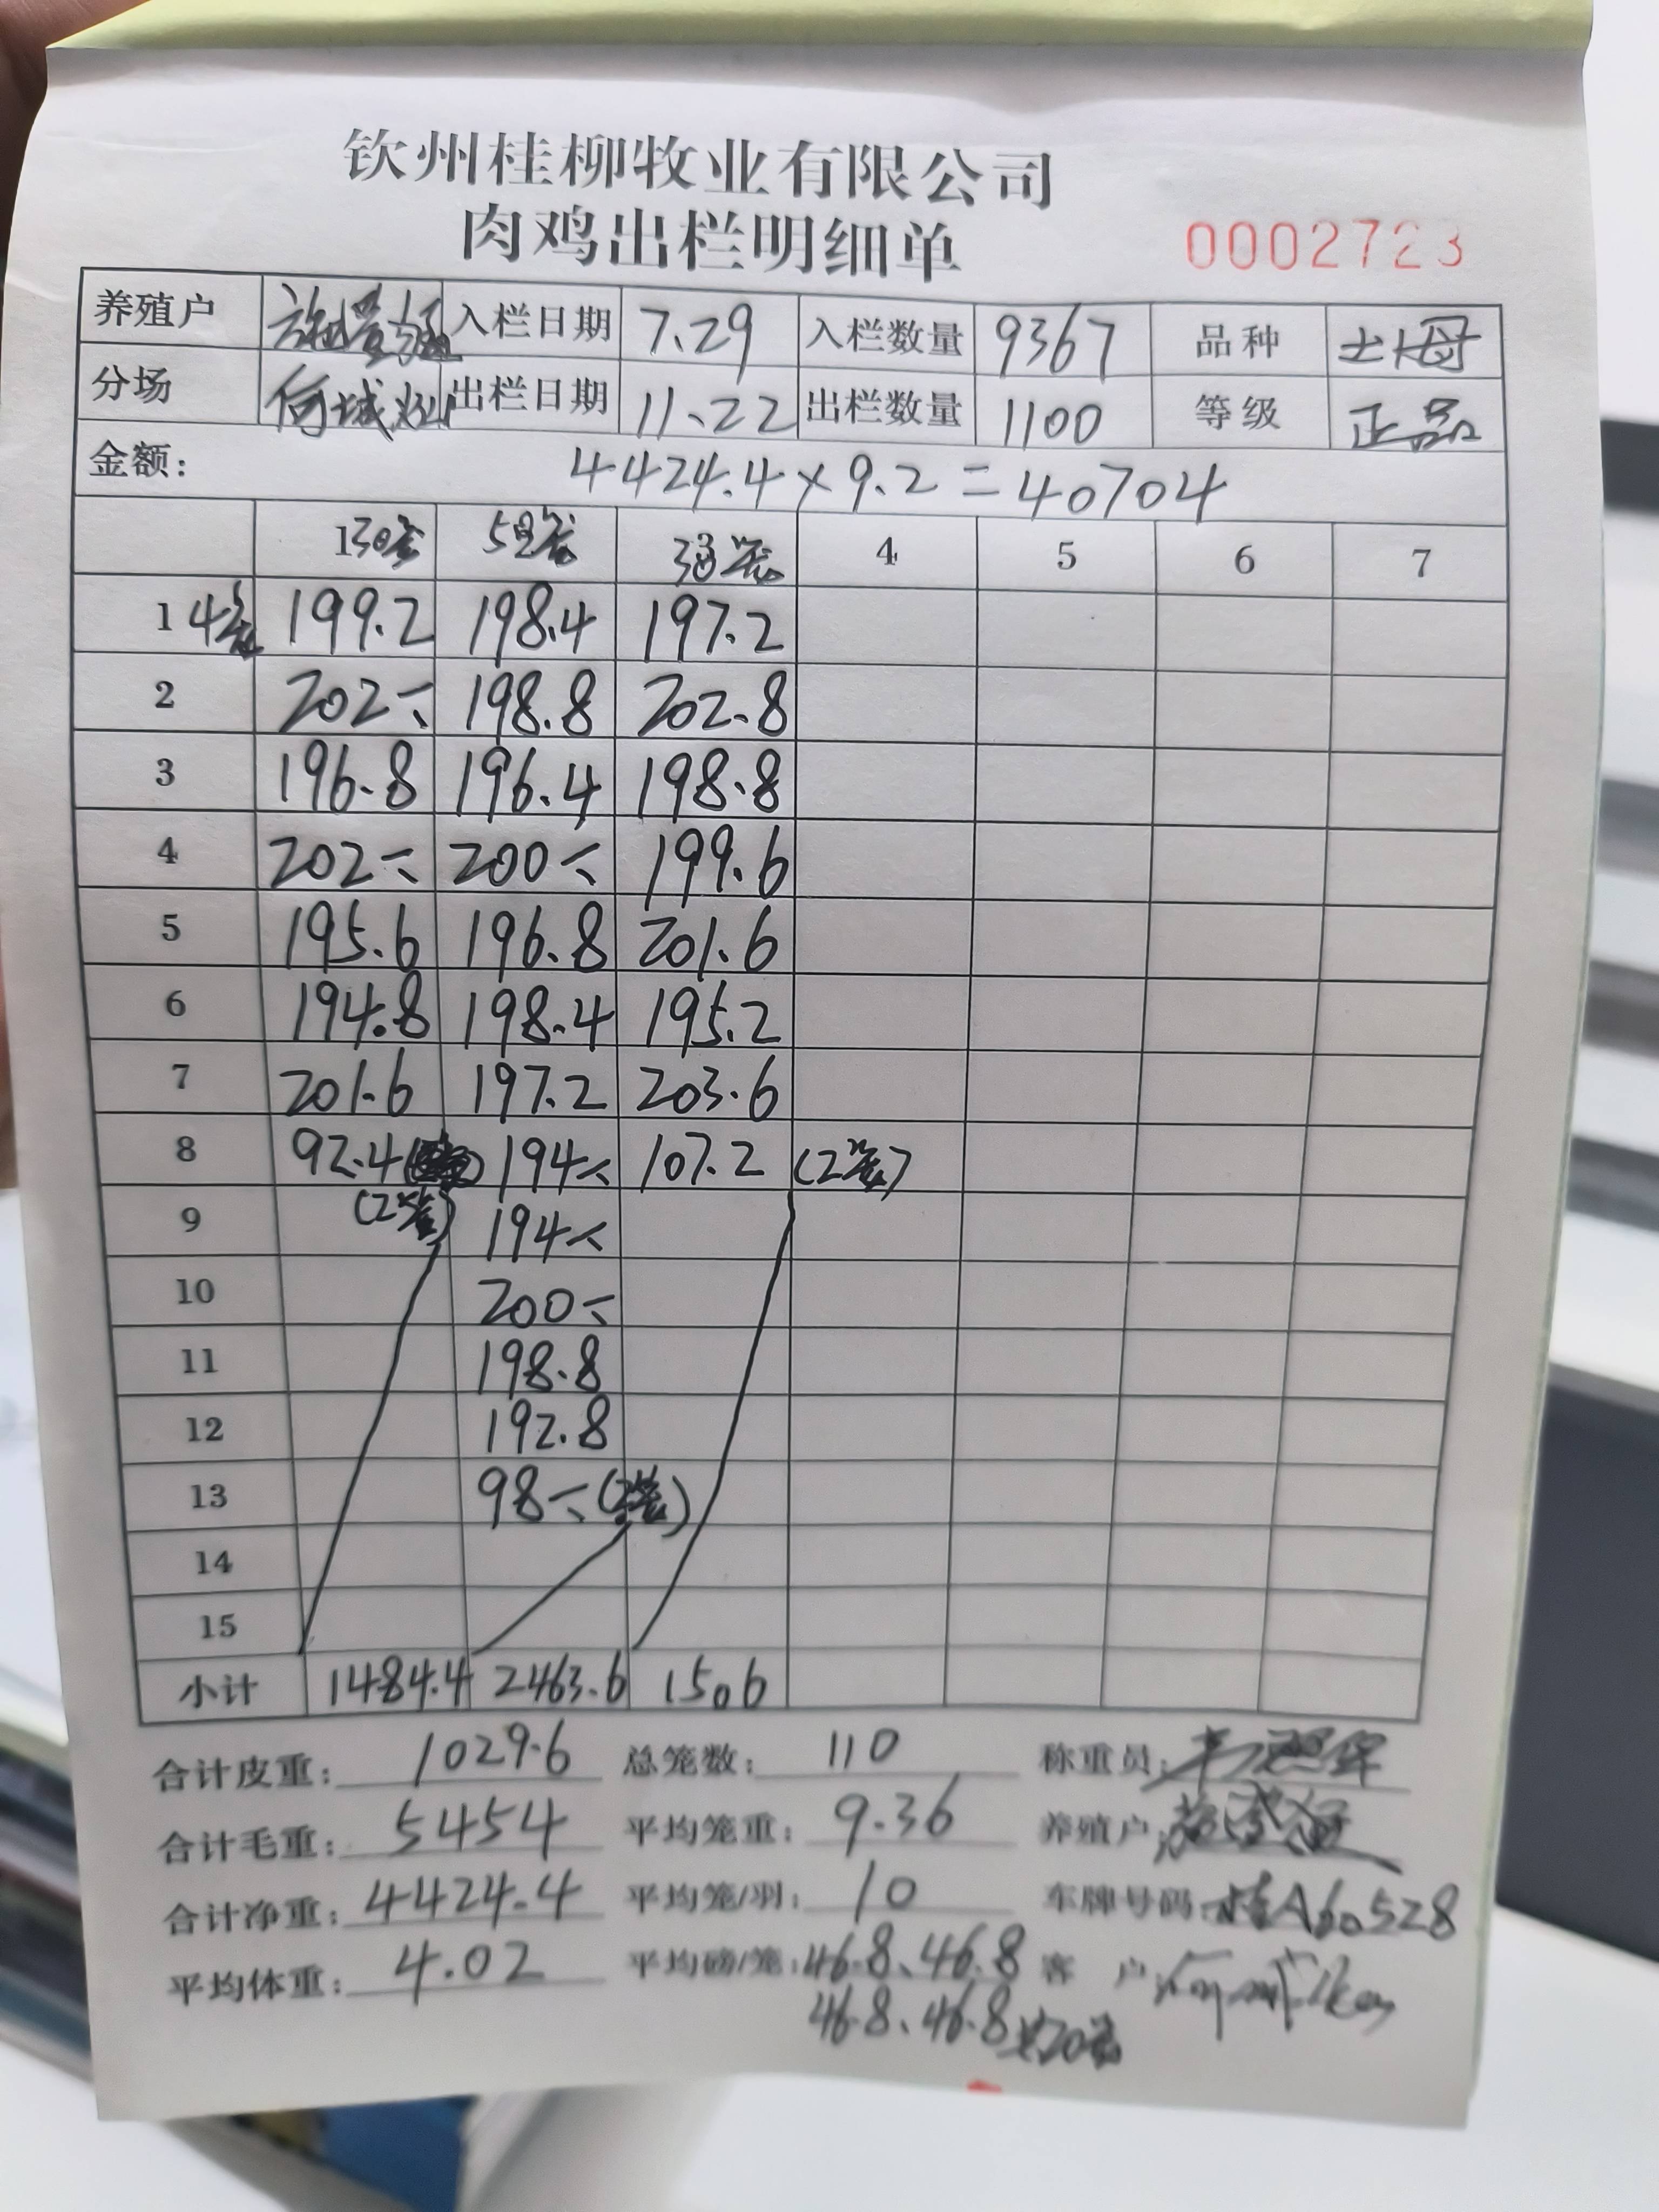 钦州桂柳牧业有限公司
肉鸡出栏明细单
0002723
养殖户 入栏日期 7.29 入栏数量 9367 品种 土1母
分场 何城 出栏日期 11.22 出栏数量 1100 等级 正品
金额: 4424.4×9.2=40704
1 30笼 2 3 笼 4 5 6 7
1 4笼 199.2 198.4 197.2
2 202 198.8 202.8
3 196.8 196.4 198.8
4 202 200 199.6
5 195.6 196.8 201.6
6 194.8 198.4 195.2
7 201.6 197.2 203.6
8 92.4 194 107.2 (2笼)
9 (2笼) 194
10 200
11 198.8
12 192.8
13 98 (2笼)
14
15
小计 1484.4 2463.6 1506
合计皮重: 1029.6 总笼数: 110 称重员:
合计毛重: 5454 平均笼重: 9.36 养殖户:
合计净重: 4424.4 平均笼/羽: 10 车牌号码: 桂A60528
平均体重: 4.02 平均磅/笼: 46.8、46.8 客 户:
46.8、46.8 共20笼